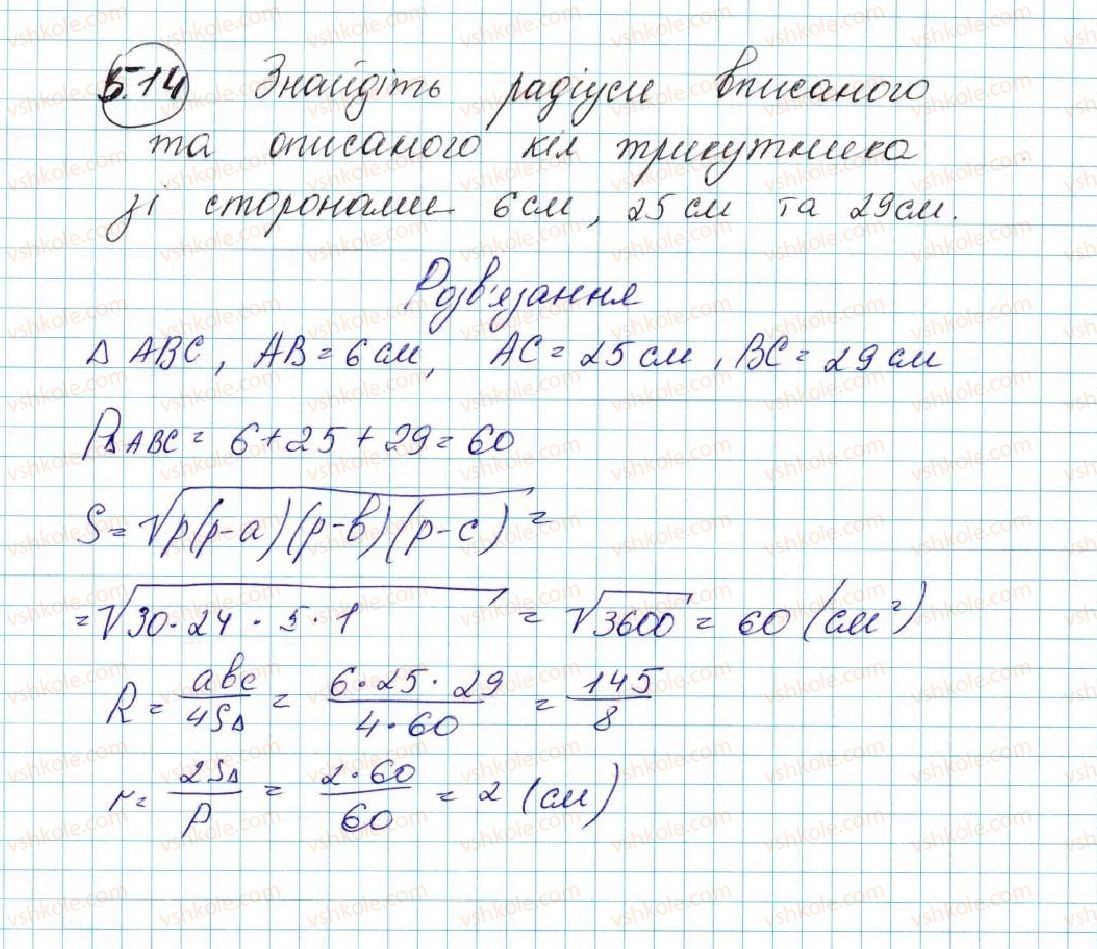 5.14 Знайдіть радіуси вписаного
та описаного кіл трикутника
зі сторонами 6см, 25 см та 29см.
Розв'язання
Δ ABC, AB = 6 см, AC = 25 см, BC = 29 см
PΔABC = 6 + 25 + 29 = 60
S = √p(p-a)(p-b)(p-c) =
= √30·24·5·1 = √3600 = 60 (см²)
R = abc/4SΔ = 6·25·29/4·60 = 145/8
r = 2SΔ/P = 2·60/60 = 2 (см)
vshkole.com